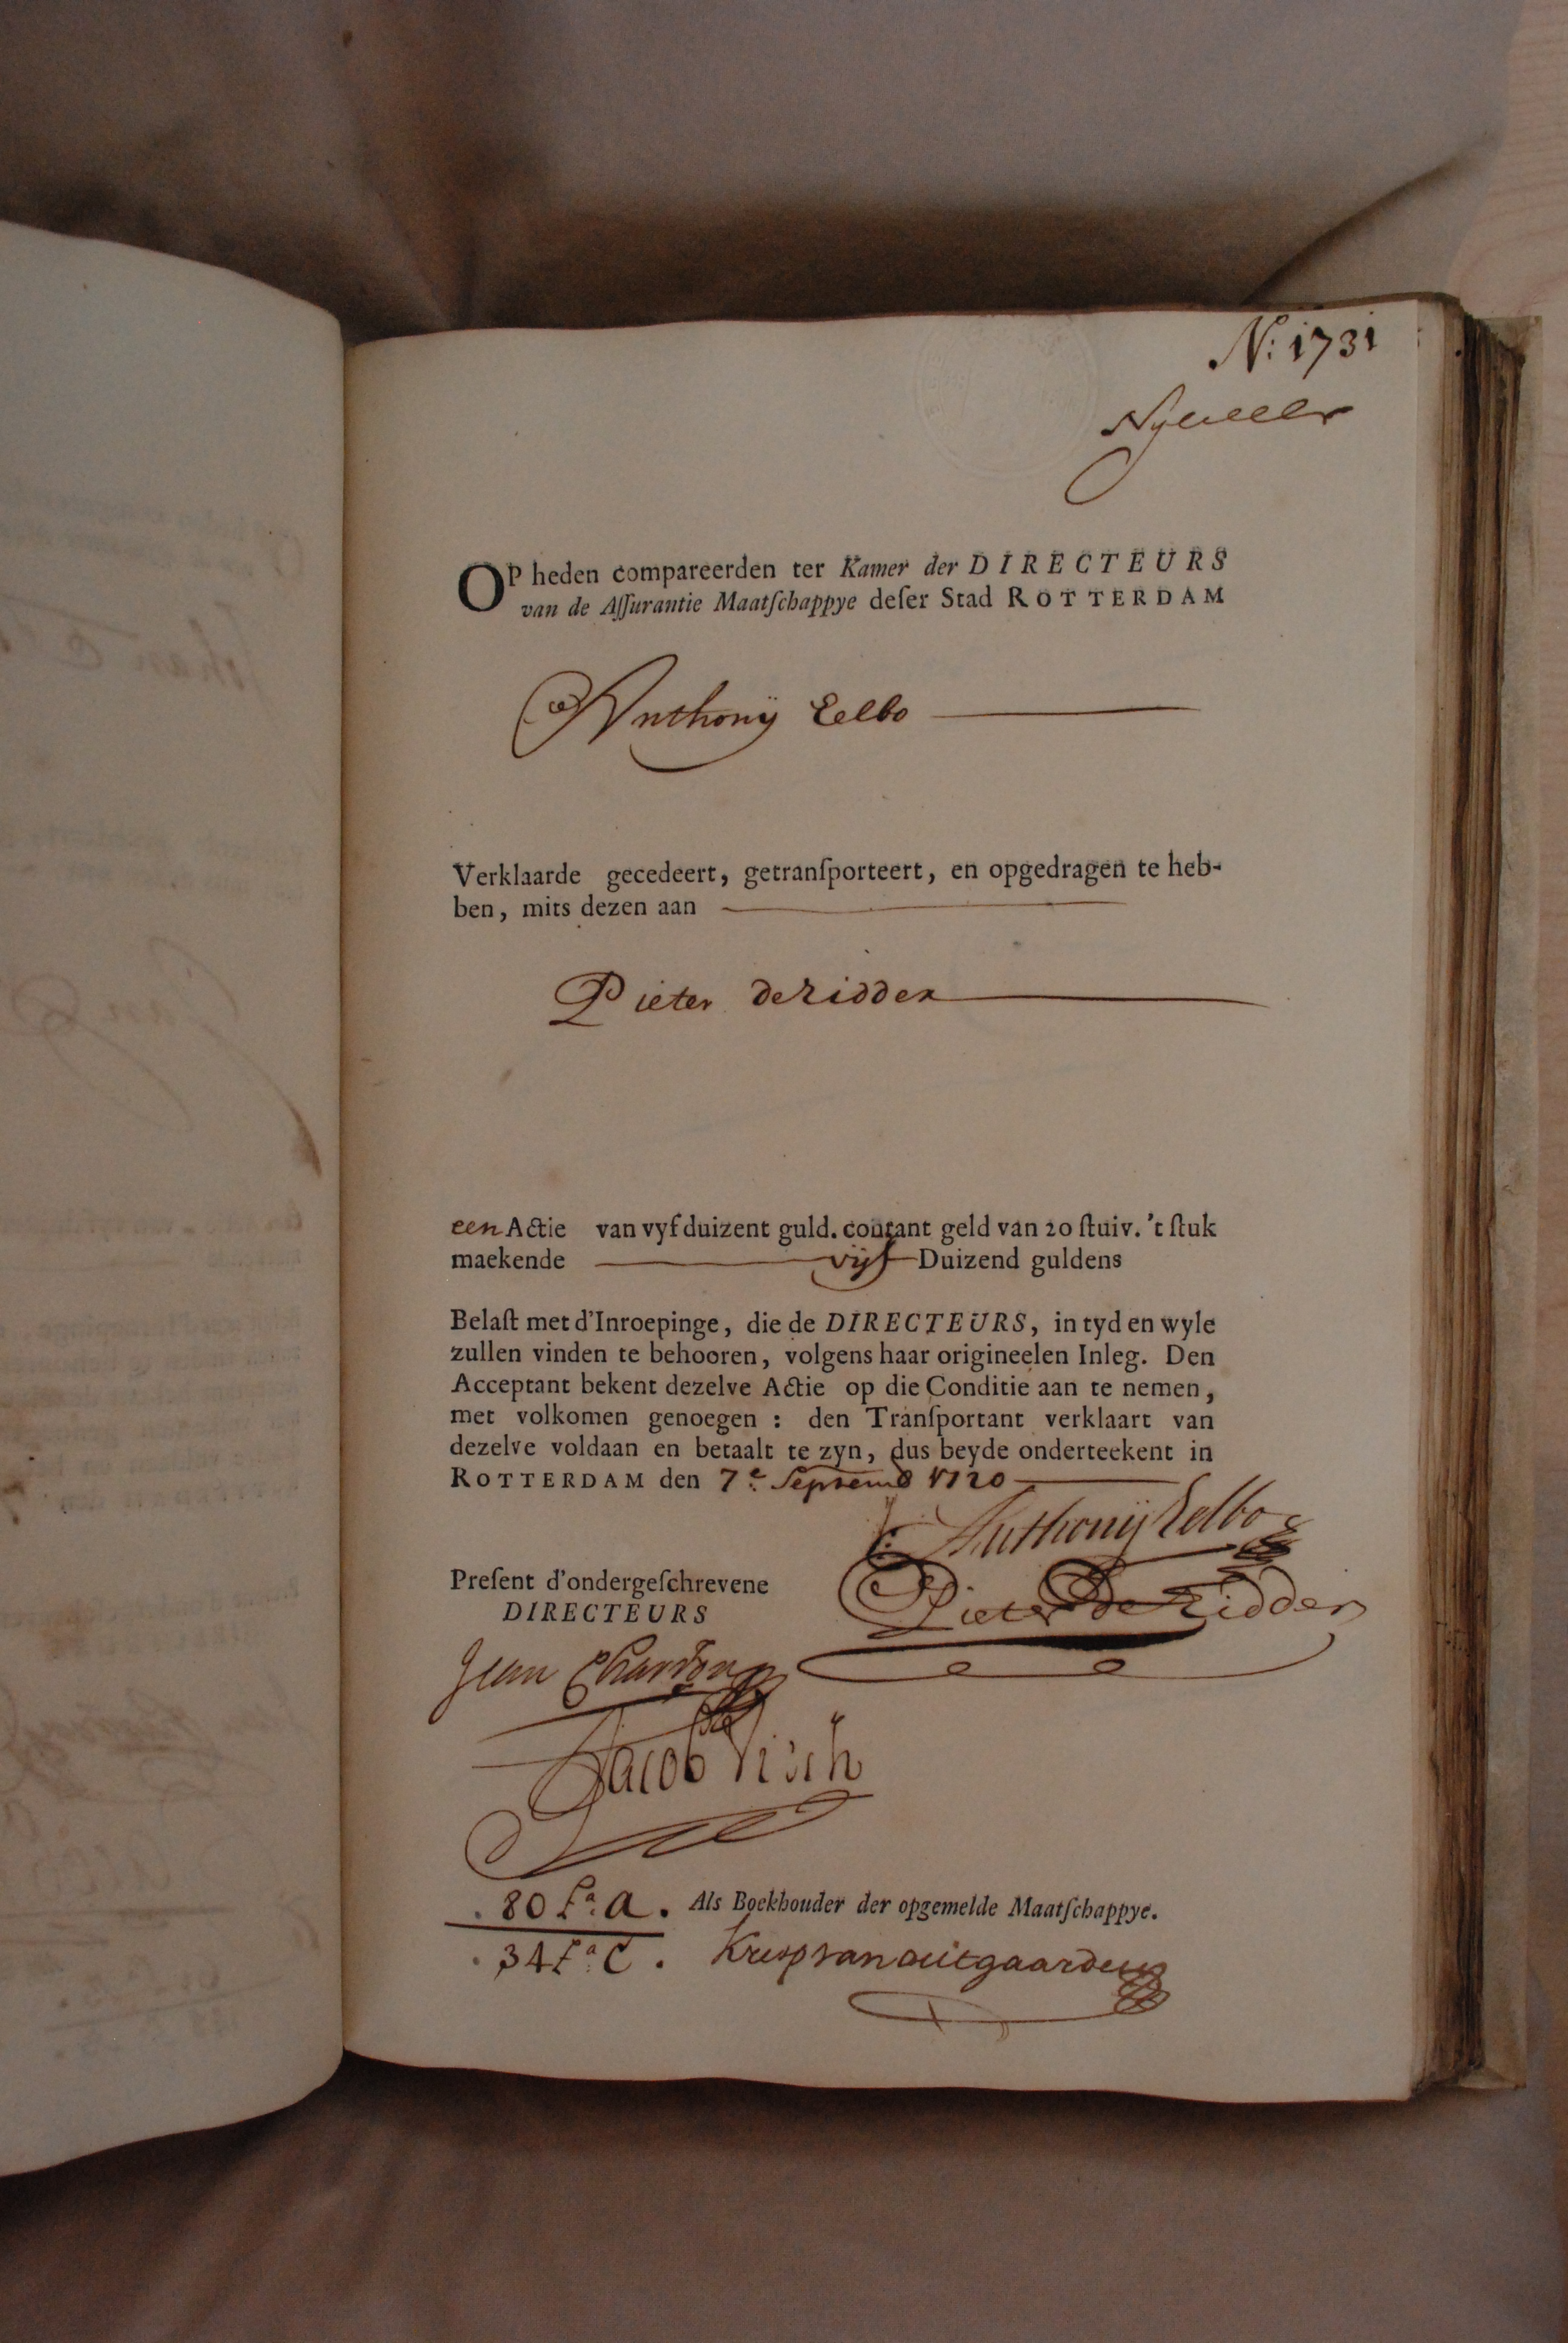 N: 1731
OP heden compareerden ter Kamer der DIRECTEURS
van de Aſſurantie Maatſchappye deſer Stad ROTTERDAM
Anthonij Eelbo
Verklaarde gecedeert, getranſporteert, en opgedragen te heb-
ben, mits dezen aan
Pieter de Ridder
een Actie van vyf duizent guld. contant geld van 20 ſtuiv. 't ſtuk
maekende vijf Duizend guldens
Belaſt met d'Inroepinge, die de DIRECTEURS, in tyd en wyle
zullen vinden te behooren, volgens haar origineelen Inleg. Den
Acceptant bekent dezelve Actie op die Conditie aan te nemen,
met volkomen genoegen : den Tranſportant verklaart van
dezelve voldaan en betaalt te zyn, dus beyde onderteekent in
ROTTERDAM den 7e Septemb 1720
Anthonij Eelbo
Preſent d'ondergeſchrevene
Pieter de Ridder
DIRECTEURS
Jean Chardon
Jacob Visch
80 fa: A. Als Boekhouder der opgemelde Maatſchappye.
34 fa: C.